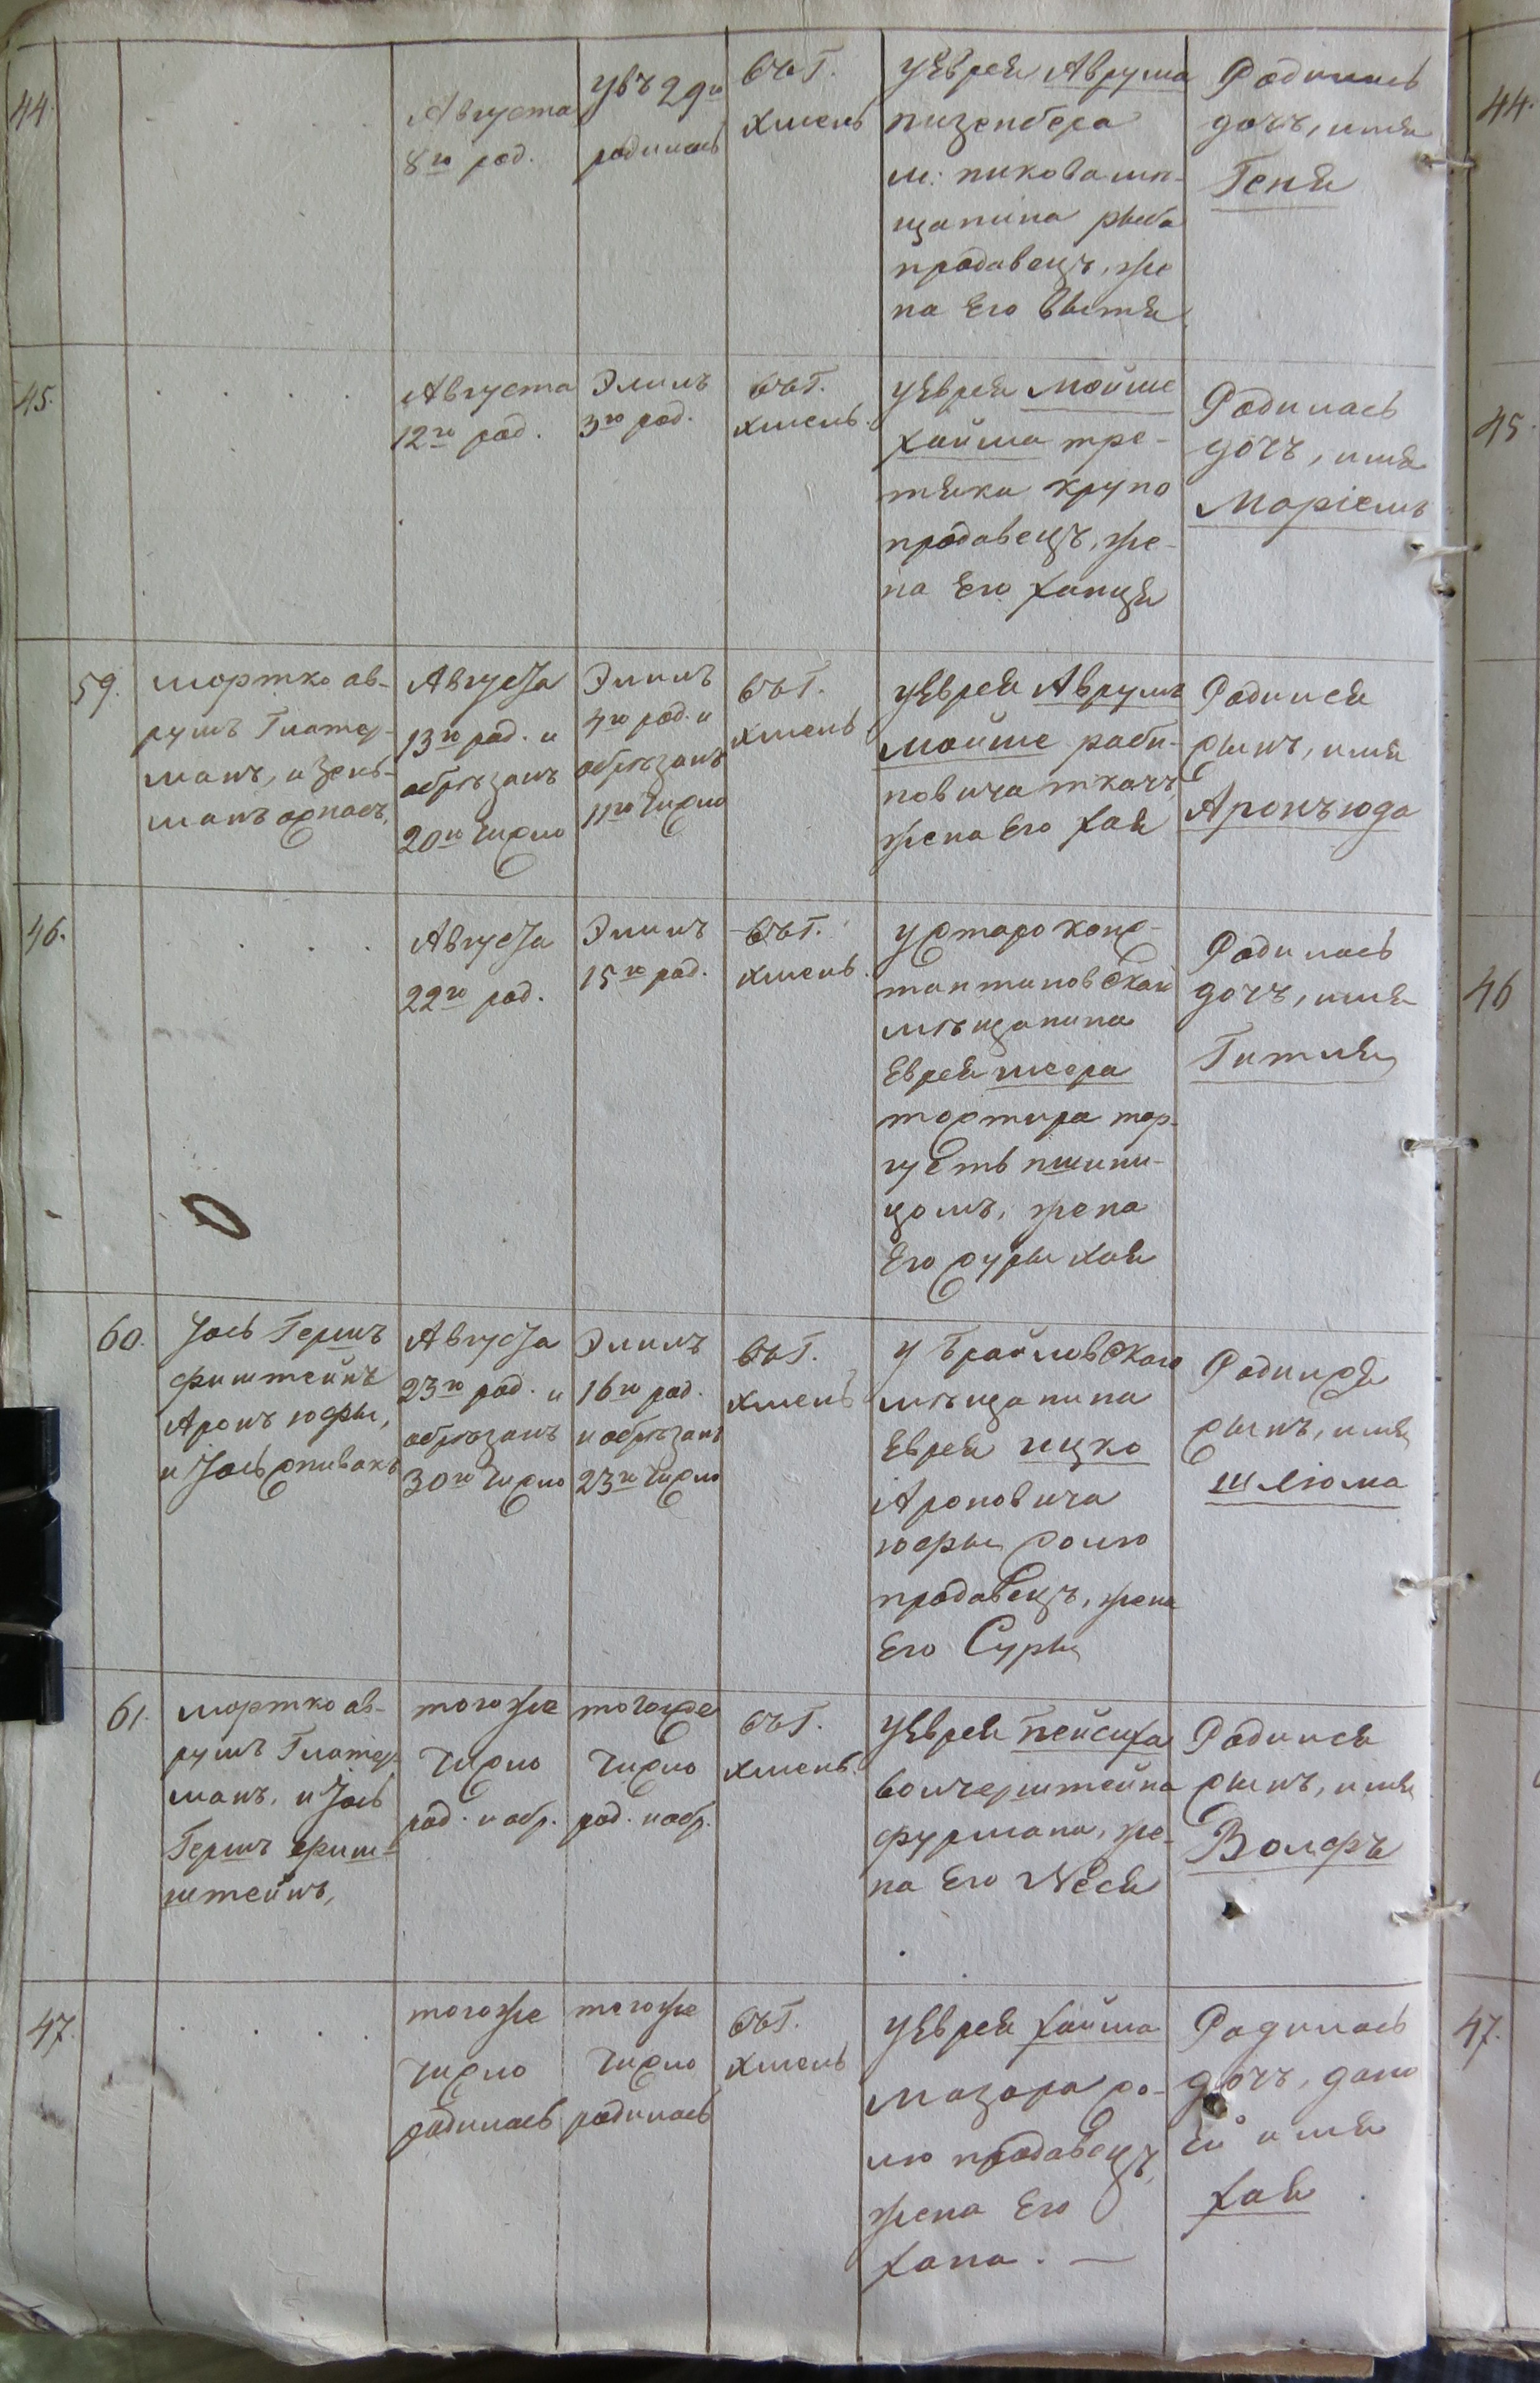 44.
Августа
8го род.
Увъ 29го
родилась
въ Г.
Хмель
У Еврея Аврума
низенбера
м: пикова мѣ-
щанина рыба
продавецъ, же
на Его
Родилась
дочъ, имя
Геня
44.
45.
Августа
12го род.
Элилъ
3го род.
въ Г.
Хмель.
У Еврея Мойше
Хайма тре-
тяка крупо
продавецъ, же-
на Его Ханця
Родилась
дочъ, имя
Маріемъ
45.
59.
Мортко ав-
румъ Глатер-
манъ, и Зень-
манъ
Августа
13го род. и
обрѣзанъ
20го Число
Элилъ
4го род. и
обрѣзанъ
11го Число
въ Г.
Хмель
У Еврея Аврумъ
Мойше раби-
новича ткачъ,
жена Его Хая
Родился
сынъ, имя
Аронъ юда
46.
Августа
22го род.
Элилъ
15го род.
въ Г.
Хмель.
У Старо конс-
тантиновской
мѣщанина
Еврея
тостира тор-
гуеть пшени-
цомъ, жена
Его суры Хая
Родилась
дочъ, имя
Гитля
46
60.
Іось Гершъ
фиштейнъ
Аронъ юфы,
и Іось спивакъ
Августа
23го род. и
обрѣзанъ
30го Число
Элилъ
16го род.
и обрѣзанъ
23го Число
въ Г.
Хмель
У Браиловскаго
мѣщанина
Еврея ицко
Ароновича
юфы солю
продавецъ, жена
Его Суры
Родился
сынъ, имя
шлюма
61.
Мортко ав-
румъ Глатер-
манъ, и Іось
Гершъ фиш-
штейнъ,
тогоже
Число
род. и обр.
тогоже
Число
род. и обр.
въ Г.
Хмель.
У Еврея Пейсиха
волчерштейна
фурмана, же-
на Его Неся
Родился
сынъ, имя
Волфъ
47.
тогоже
Число
родилась
тогоже
Число
родилась
въ Г.
Хмель
У Еврея Хайма
Мазора со-
лю продавецъ,
жена Его
Хана. —
Родилась
дочъ, дано
Ей имя
Хая
47.